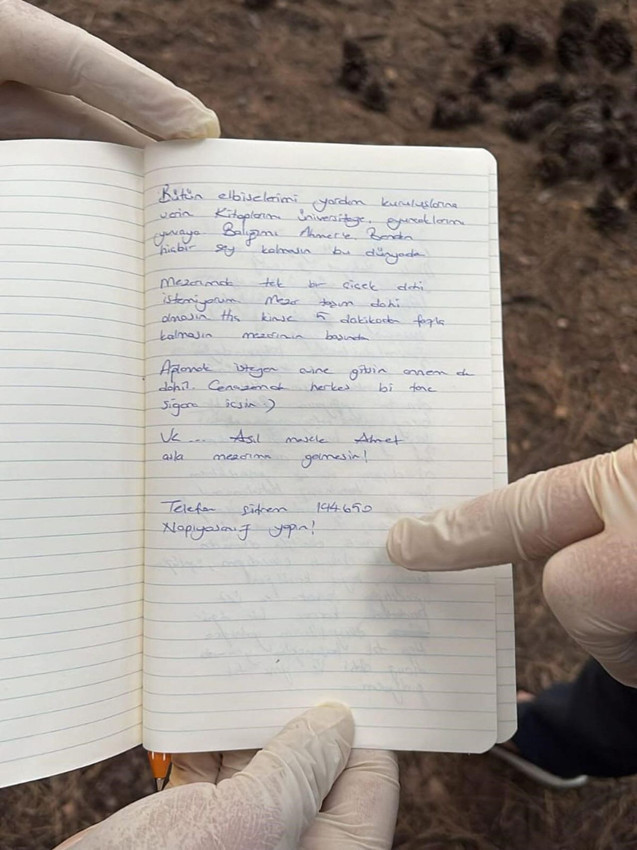 Bütün elbiselerimi yardım kuruluşlarına
verin Kitaplarım üniversiteye, oyuncaklarım
yuvaya Balığımı Ahmet'e. Benden
hiçbir şey kalmasın bu dünyada
Mezarımda tek bir çiçek dahi
istemiyorum. Mezar taşım dahi
olmasın Hiç kimse 5 dakikadan fazla
kalmasın mezarımın başında
Ağlamak isteyen evine gitsin annem de
dahil. Cenazemde herkes bi tane
sigara içsin :)
Ve... Asıl mesele Ahmet
asla mezarıma gelmesin!
Telefon şifrem 194650
Napıyosanız yapın!